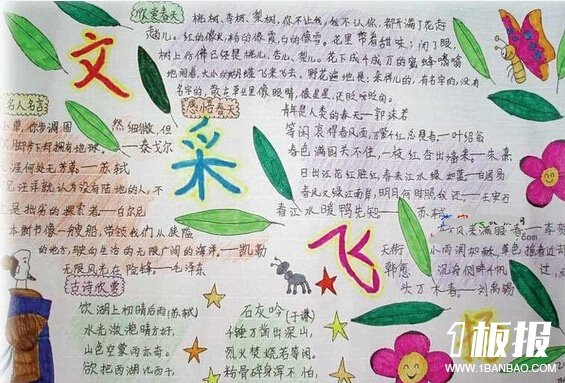 欣赏春天
桃树、杏树、梨树，你不让我，我不让你，都开满了花赶
趟儿。红的像火，粉的像霞，白的像雪。花里带着甜味；闭了眼，
树上仿佛已经满是桃儿、杏儿、梨儿。花下成千成百的蜜蜂嗡嗡
地闹着，大小的蝴蝶飞来飞去。野花遍地是：杂样儿，有名字的，没有
名字的，散在草丛里像眼睛，像星星，还眨呀眨的。
文
采
飞
名人名言
小草，你步调固
然细微，但
你脚下却拥有地球。——泰戈尔
天涯何处无芳草。——苏轼
汪洋就认为没有陆地的人，不
是拙劣的探索者。——白尔尼
本书像一艘船，带领我们从狭隘
的地方，驶向生活的无限广阔的海洋。——凯勒
无限风光在险峰。——毛泽东
感悟春天
青年是人类的春天——郭沫若
等闲识得春风面，万紫千红总是春。——叶绍翁
春色满园关不住，一枝红杏出墙来。——朱熹
日出江花红胜火，春来江水绿如蓝。——白居易
春风又绿江南岸，明月何时照我还。——王安石
春江水暖鸭先知——苏轼
天街小雨润如酥，草色遥看近却
韩愈
沉舟侧畔千帆过，
头万木春。——刘禹锡
古诗欣赏
饮湖上初晴后雨(苏轼)
水光潋滟晴方好，
山色空蒙雨亦奇。
欲把西湖比西子，
石灰吟(于谦)
千锤万凿出深山，
烈火焚烧若等闲。
粉骨碎身浑不怕，
1板报
WWW.1BANBAO.COM